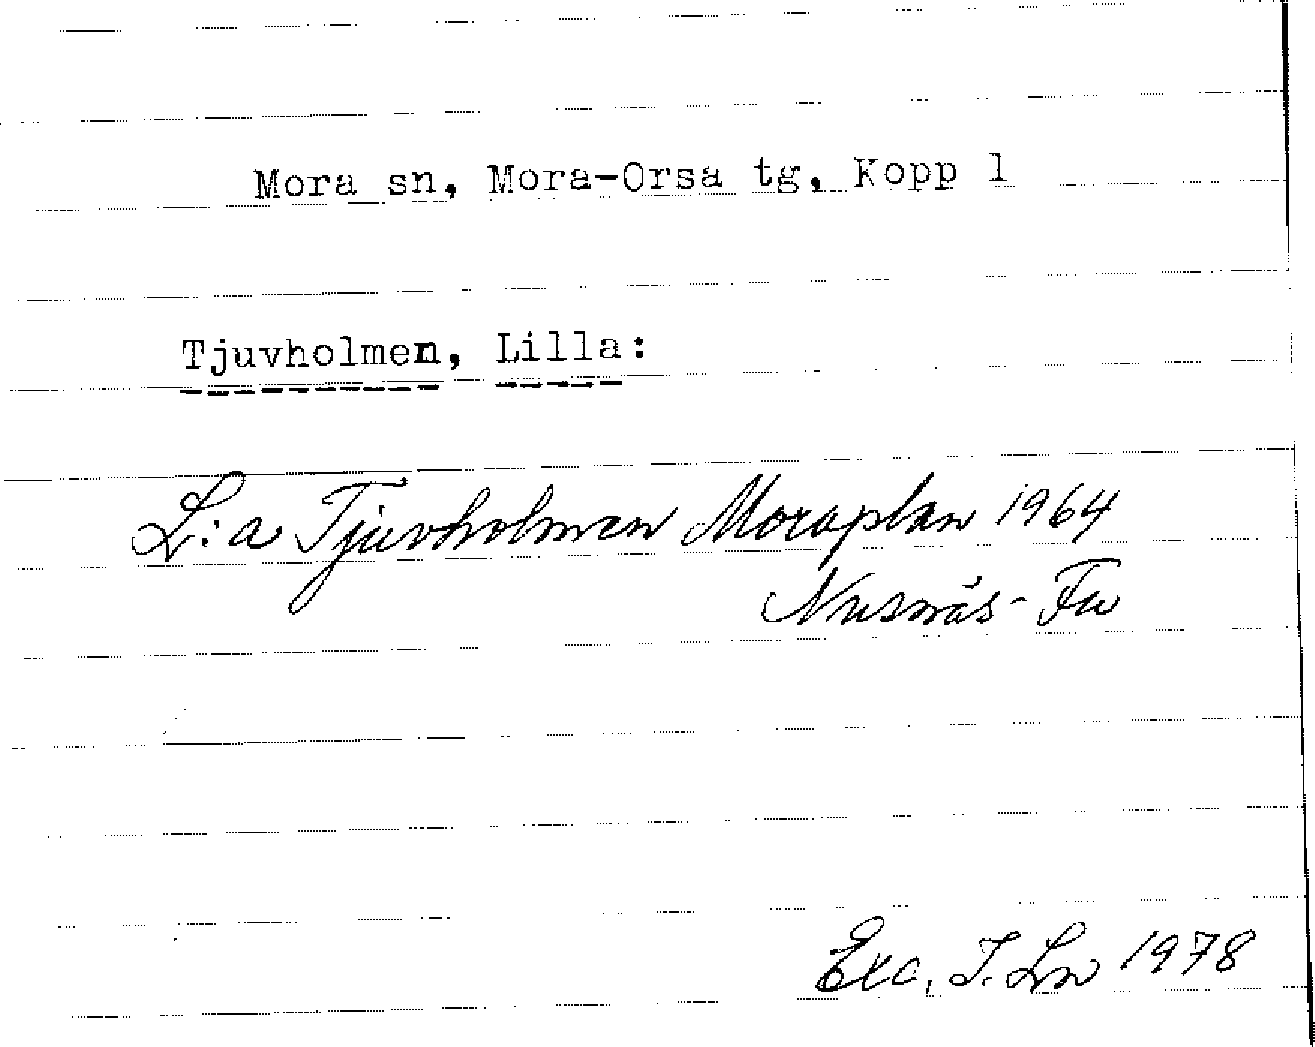 Mora sn, Mora-Orsa tg, Kopp l
Tjuvholmen, Lilla:
L:a Tjuvholmen Moraplan 1964
Nusnäs - Fu
Exc. I. Ln 1978